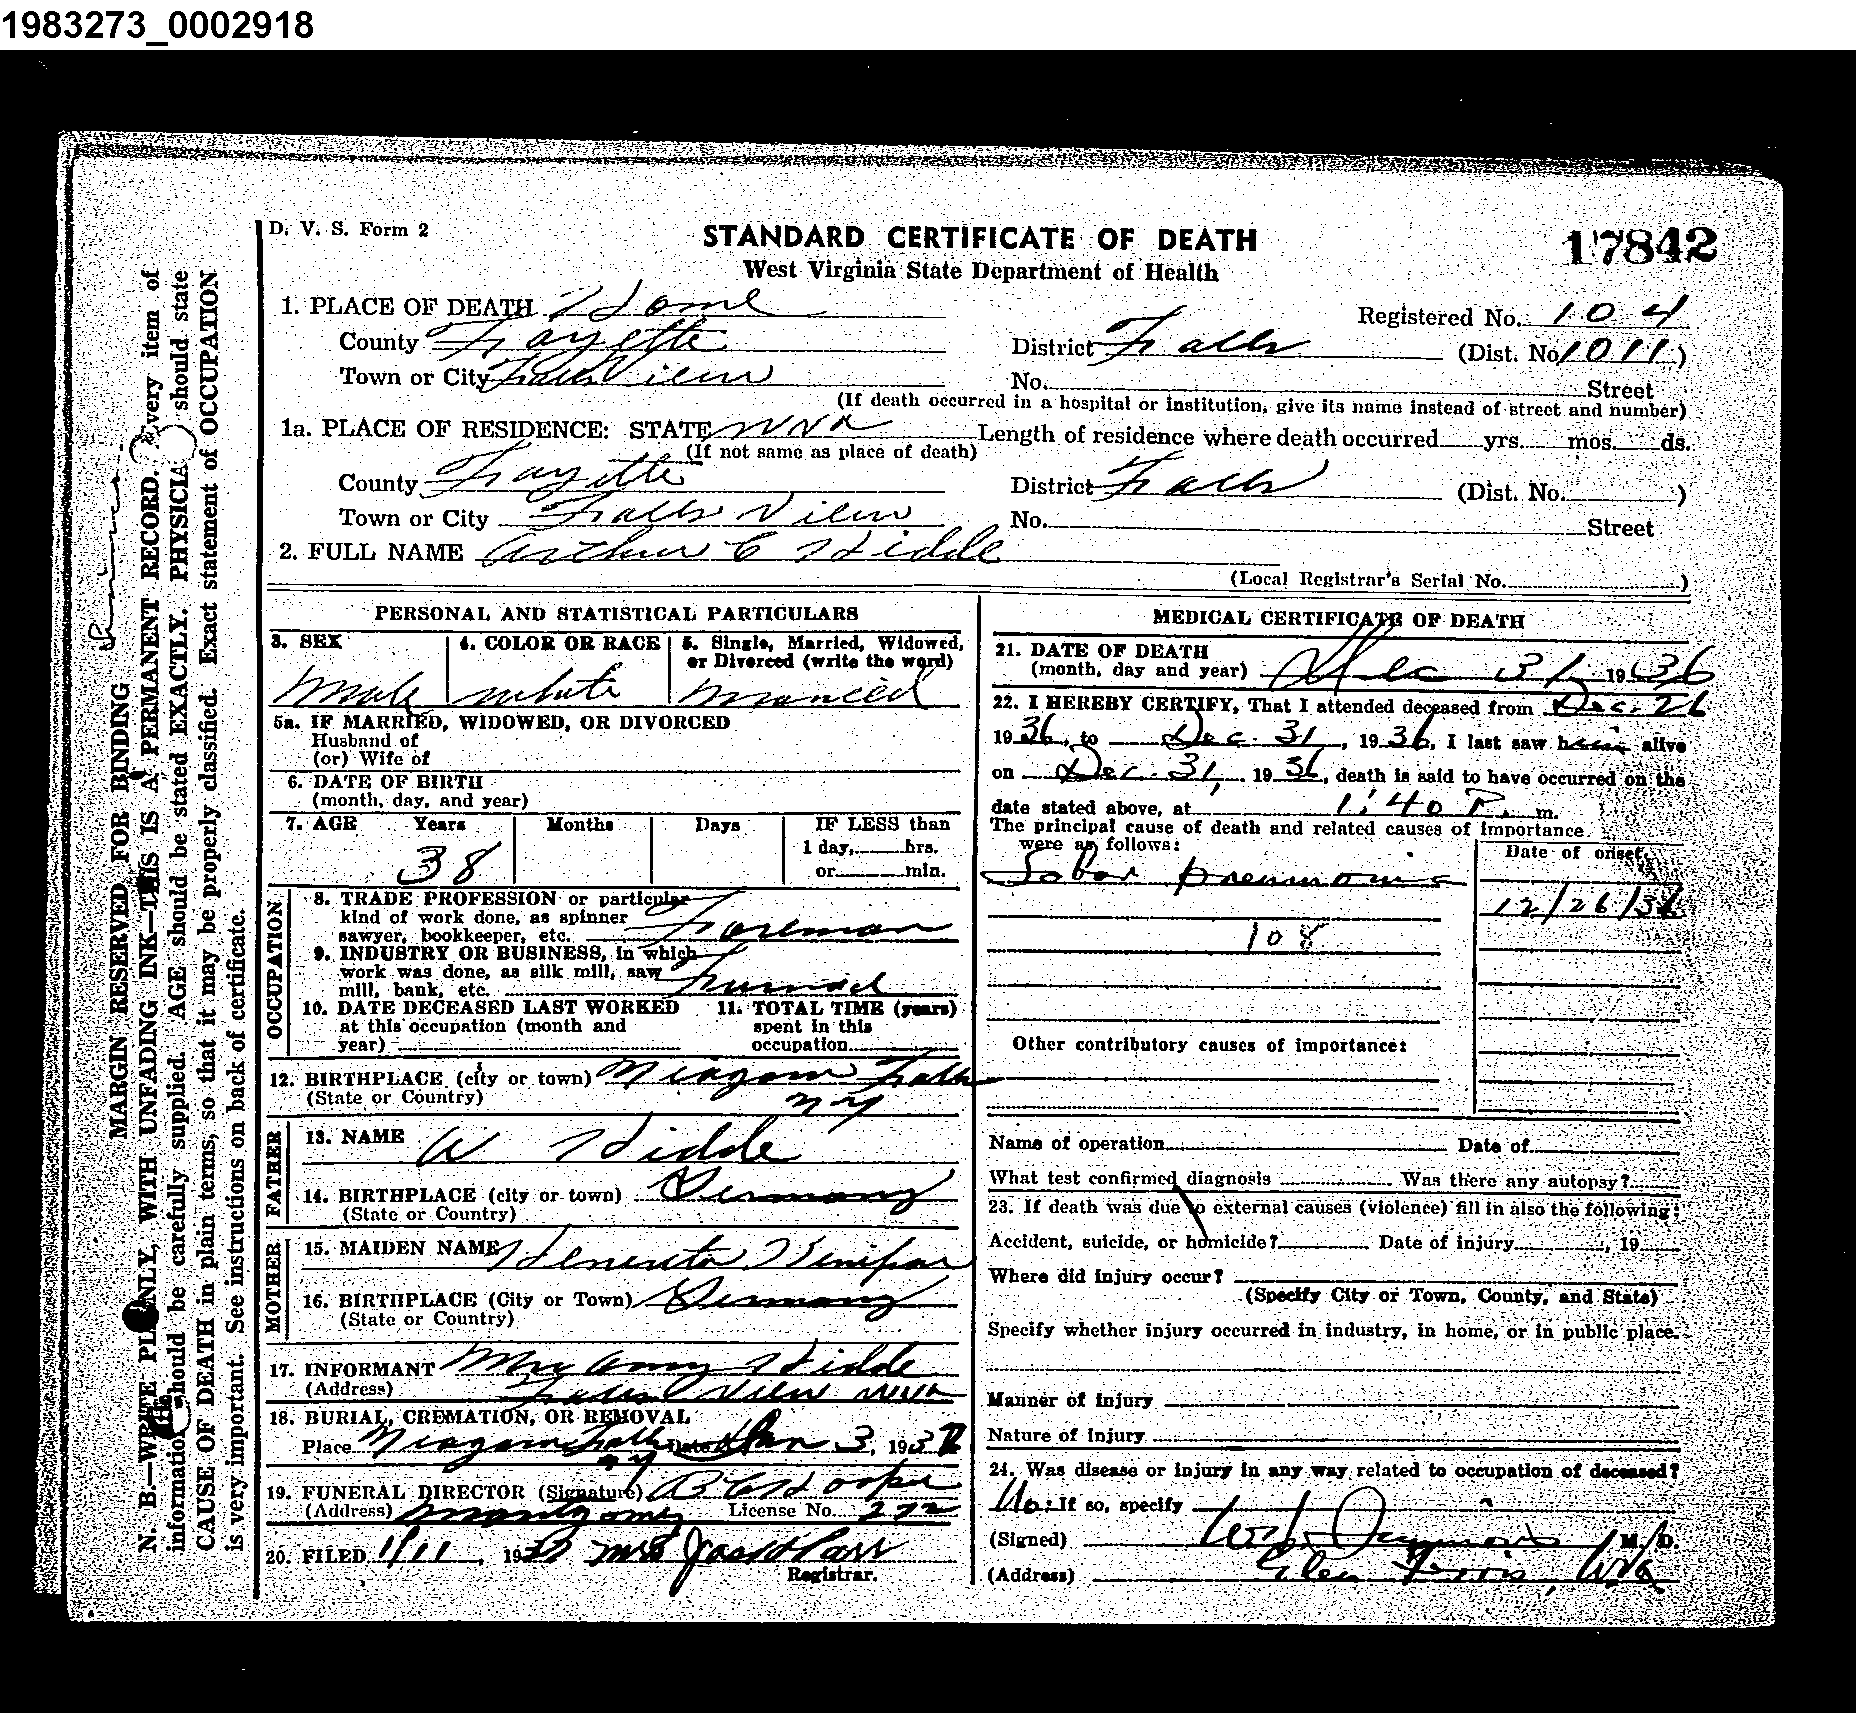 1983273_0002918
D. V. S. Form 2
STANDARD CERTIFICATE OF DEATH
17842
West Virginia State Department of Health
1. PLACE OF DEATH Home
Registered No. 104
County Fayette District Falls (Dist. No. 1011)
Town or City Falls View No. Street
(If death occurred in a hospital or institution, give its name instead of street and number)
1a. PLACE OF RESIDENCE: STATE W Va Length of residence where death occurred yrs. mos. ds.
(If not same as place of death)
County Fayette District Falls (Dist. No. )
Town or City Falls View No. Street
2. FULL NAME Arthur C Hidde
(Local Registrar's Serial No. )
PERSONAL AND STATISTICAL PARTICULARS
3. SEX Male
4. COLOR OR RACE white
5. Single, Married, Widowed, or Divorced (write the word) Married
5a. IF MARRIED, WIDOWED, OR DIVORCED
Husband of
(or) Wife of
6. DATE OF BIRTH
(month, day, and year)
7. AGE Years Months Days IF LESS than
1 day, hrs.
38 or min.
OCCUPATION
8. TRADE PROFESSION or particular
kind of work done, as spinner
sawyer, bookkeeper, etc. Foreman
9. INDUSTRY OR BUSINESS, in which
work was done, as silk mill, saw
mill, bank, etc.
10. DATE DECEASED LAST WORKED
at this occupation (month and
year)
11. TOTAL TIME (years)
spent in this
occupation
12. BIRTHPLACE (city or town) Niagara Falls
(State or Country) N Y
FATHER
13. NAME W Hidde
14. BIRTHPLACE (city or town) Germany
(State or Country)
MOTHER
15. MAIDEN NAME
16. BIRTHPLACE (City or Town) Germany
(State or Country)
17. INFORMANT Mrs Amy Hidde
(Address) Falls View W Va
18. BURIAL, CREMATION, OR REMOVAL
Place Niagara Falls N Y Date Jan 3, 1937
19. FUNERAL DIRECTOR (Signature)
(Address) Montgomery License No. 272
20. FILED 1/11, 1937 Mrs
Registrar.
MEDICAL CERTIFICATE OF DEATH
21. DATE OF DEATH
(month, day and year) Dec 31, 1936
22. I HEREBY CERTIFY, That I attended deceased from Dec. 26
1936, to Dec. 31, 1936, I last saw him alive
on Dec. 31, 1936, death is said to have occurred on the
date stated above, at 1:40 P. m.
The principal cause of death and related causes of importance
were as follows:
Date of onset
Lobar pneumonia
12/26/36
108
Other contributory causes of importance:
Name of operation Date of
What test confirmed diagnosis Was there any autopsy?
23. If death was due to external causes (violence) fill in also the following:
Accident, suicide, or homicide? Date of injury , 19
Where did injury occur?
(Specify City or Town, County, and State)
Specify whether injury occurred in industry, in home, or in public place.
Manner of injury
Nature of injury
24. Was disease or injury in any way related to occupation of deceased?
No. If so, specify
(Signed) M. D.
(Address) Glen Ferris, W Va
MARGIN RESERVED FOR BINDING
N. B.—WRITE PLAINLY, WITH UNFADING INK—THIS IS A PERMANENT RECORD. Every item of
information should be carefully supplied. AGE should be stated EXACTLY. PHYSICIA should state
CAUSE OF DEATH in plain terms, so that it may be properly classified. Exact statement of OCCUPATION
is very important. See instructions on back of certificate.